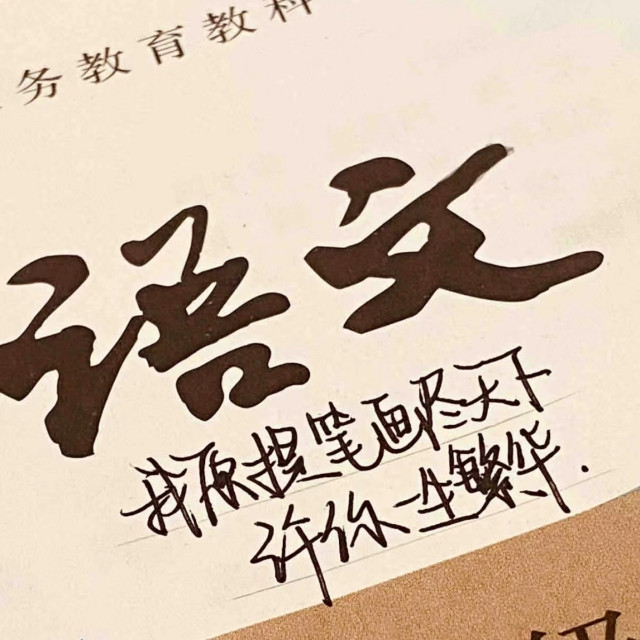 务教育教科
语文
我原提笔画尽天下
许你一生繁华.